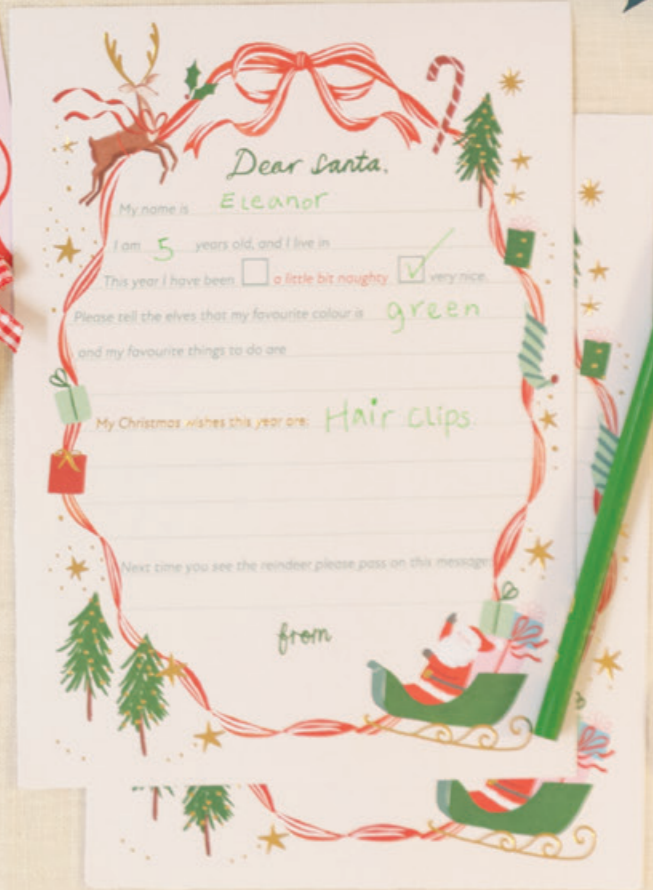 Dear Santa,
My name is Eleanor
I am 5 years old, and I live in
This year I have been a little bit naughty very nice.
Please tell the elves that my favourite colour is green
and my favourite things to do are
My Christmas wishes this year are: Hair clips
Next time you see the reindeer please pass on this message:
from